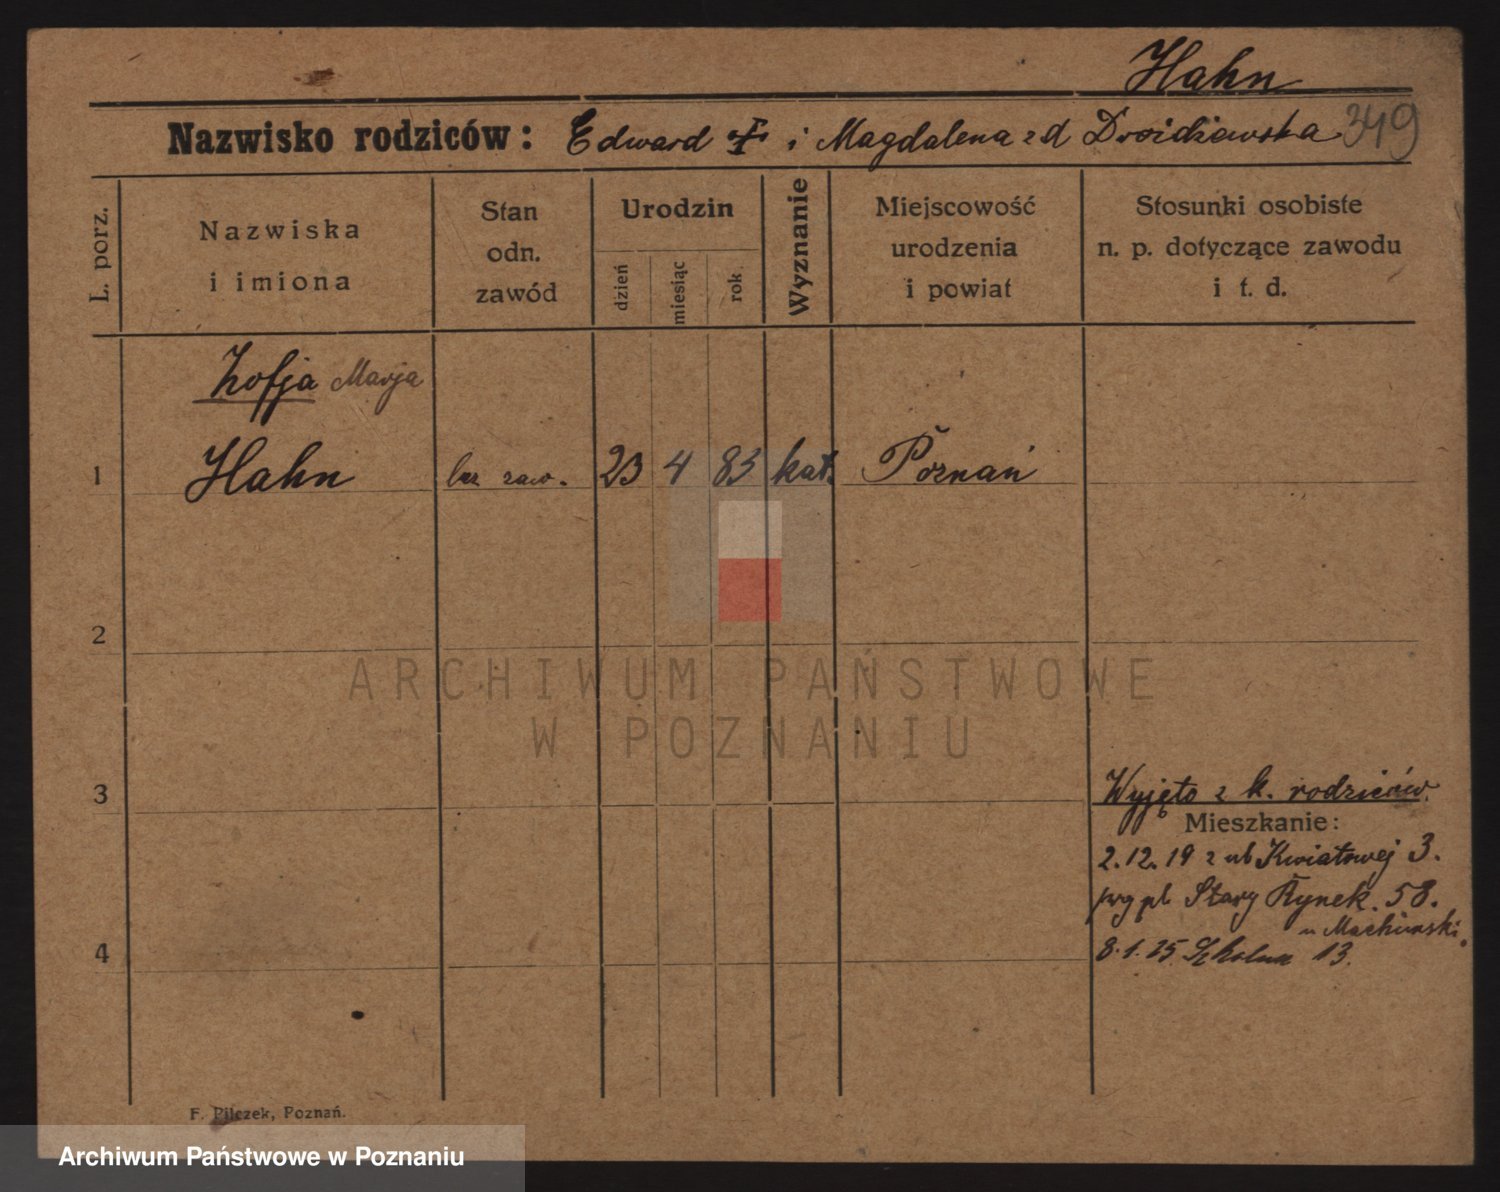 Hahn
Nazwisko rodziców: Edward i Magdalena z d Droidżewska 349
L. porz.
Nazwiska
i imiona
Stan
odn.
zawód
Urodzin
dzień
miesiąc
rok
Wyznanie
Miejscowość
urodzenia
i powiat
Stosunki osobiste
n. p. dotyczące zawodu
i t. d.
Zofja Marja
1 Hahn bez zaw. 23 4 83 kat. Poznań
2
ARCHIWUM PAŃSTWOWE
W POZNANIU
3
Wyjęto z k. rodziców.
Mieszkanie:
2.12.19 z ul Kwiatowej 3.
Stary Rynek. 58.
4
8.1.25 Szkolna 13.
F. Pilczek, Poznań.
Archiwum Państwowe w Poznaniu